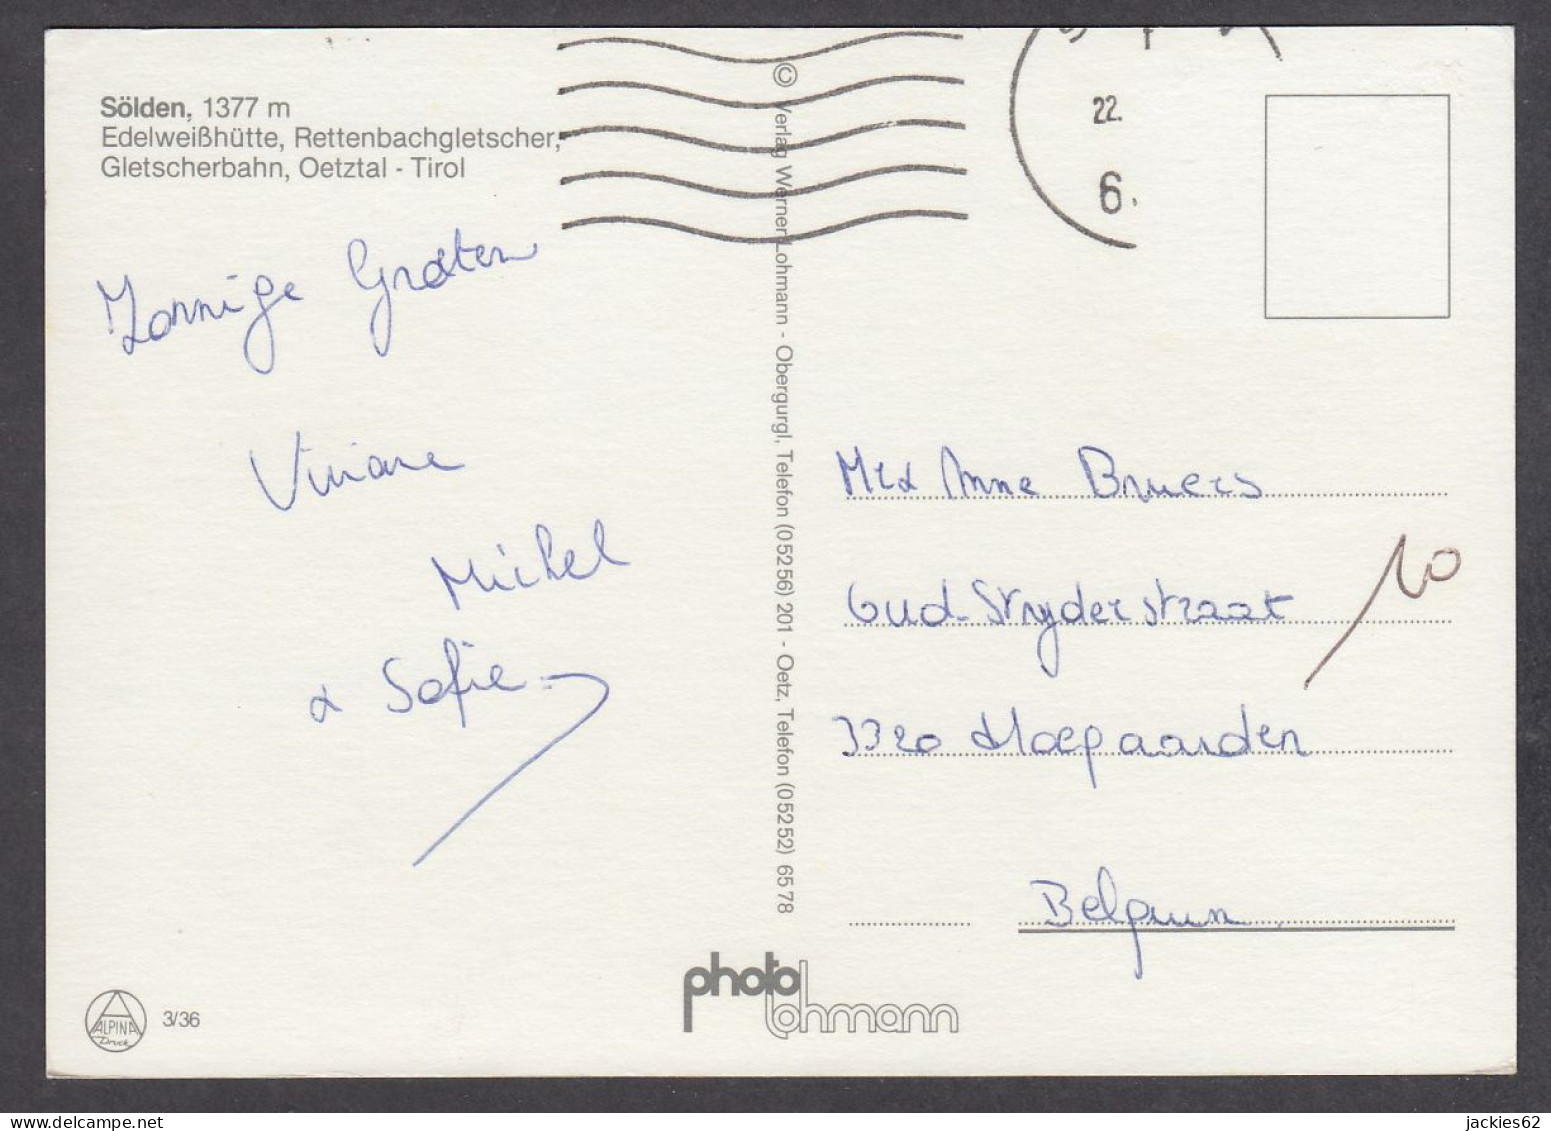 Sölden, 1377 m
Edelweißhütte, Rettenbachgletscher,
Gletscherbahn, Oetztal - Tirol
Zonnige Groeten
Viviane
Michel
& Sofie
© Verlag Werner Lohmann - Obergurgl, Telefon (05256) 201 - Oetz, Telefon (05252) 6578
22.
6.
Anne Bruers
10
3320 Hoegaarden
Belgium
photo lohmann
ALPINA Druck
3/36
jackies62